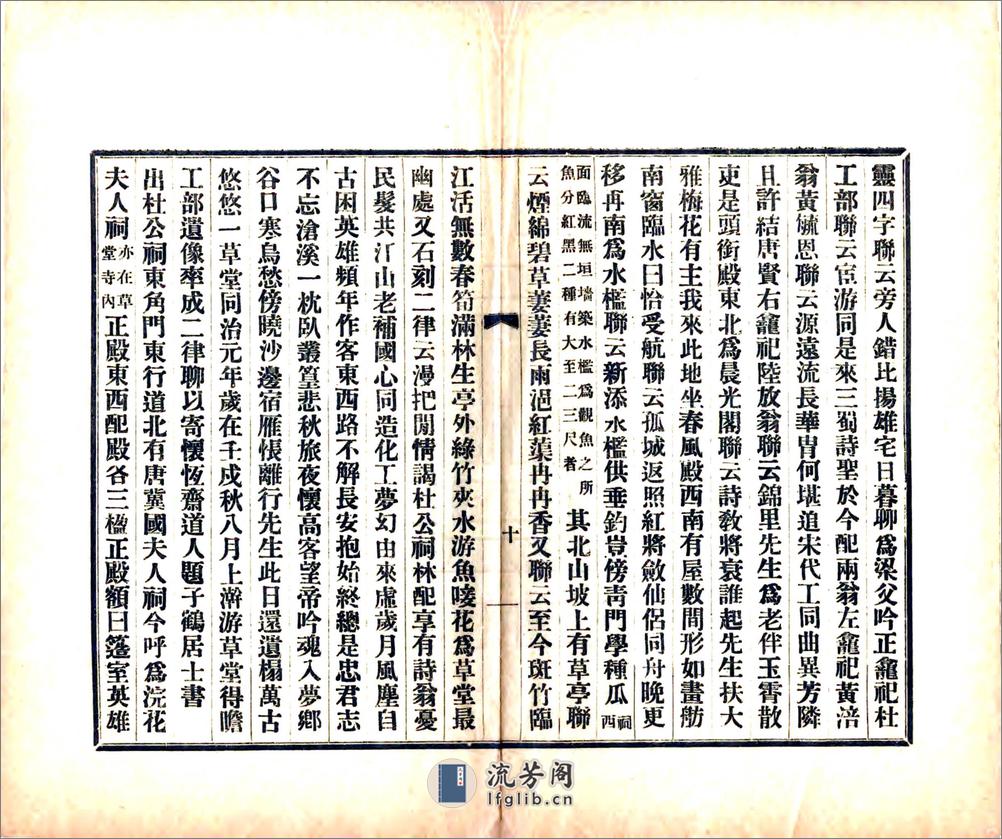 靈四字聯云旁人錯比揚雄宅日暮聊爲梁父吟正龕祀杜
工部聯云宦游同是來三蜀詩聖於今配兩翁左龕祀黃涪
翁黃毓恩聯云源遠流長華胄何堪追宋代工同曲異芳隣
且許結唐賢右龕祀陸放翁聯云錦里先生爲老伴玉霄散
吏是頭銜殿東北爲晨光閣聯云詩敎將衰誰起先生扶大
雅梅花有主我來此地坐春風殿西南有屋數間形如畫舫
南窗臨水曰怡受航聯云孤城返照紅將斂仙侶同舟晚更
移再南爲水檻聯云新添水檻供垂釣豈傍靑門學種瓜祠西
面臨流無垣墻築水檻爲觀魚之所
魚分紅黑二種有大至二三尺者
其北山坡上有草亭聯
云煙綿碧草萋萋長雨浥紅蕖冉冉香又聯云至今斑竹臨
十
江活無數春筍滿林生亭外綠竹夾水游魚唼花爲草堂最
幽處又石刻二律云漫把閒情謁杜公祠林配享有詩翁憂
民髮共江山老補國心同造化工夢幻由來虛歲月風塵自
古困英雄頻年作客東西路不解長安抱始終總是忠君志
不忘滄溪一枕臥叢篁悲秋旅夜懷高客望帝吟魂入夢鄉
谷口寒烏愁傍曉沙邊宿雁悵離行先生此日還遺榻萬古
悠悠一草堂同治元年歲在壬戍秋八月上澣游草堂得瞻
工部遺像率成二律聊以寄懷恆齋道人題子鶴居士書
出杜公祠東角門東行道北有唐冀國夫人祠今呼爲浣花
夫人祠亦在草堂寺內正殿東西配殿各三楹正殿額曰簉室英雄
流芳阁
lfglib.cn